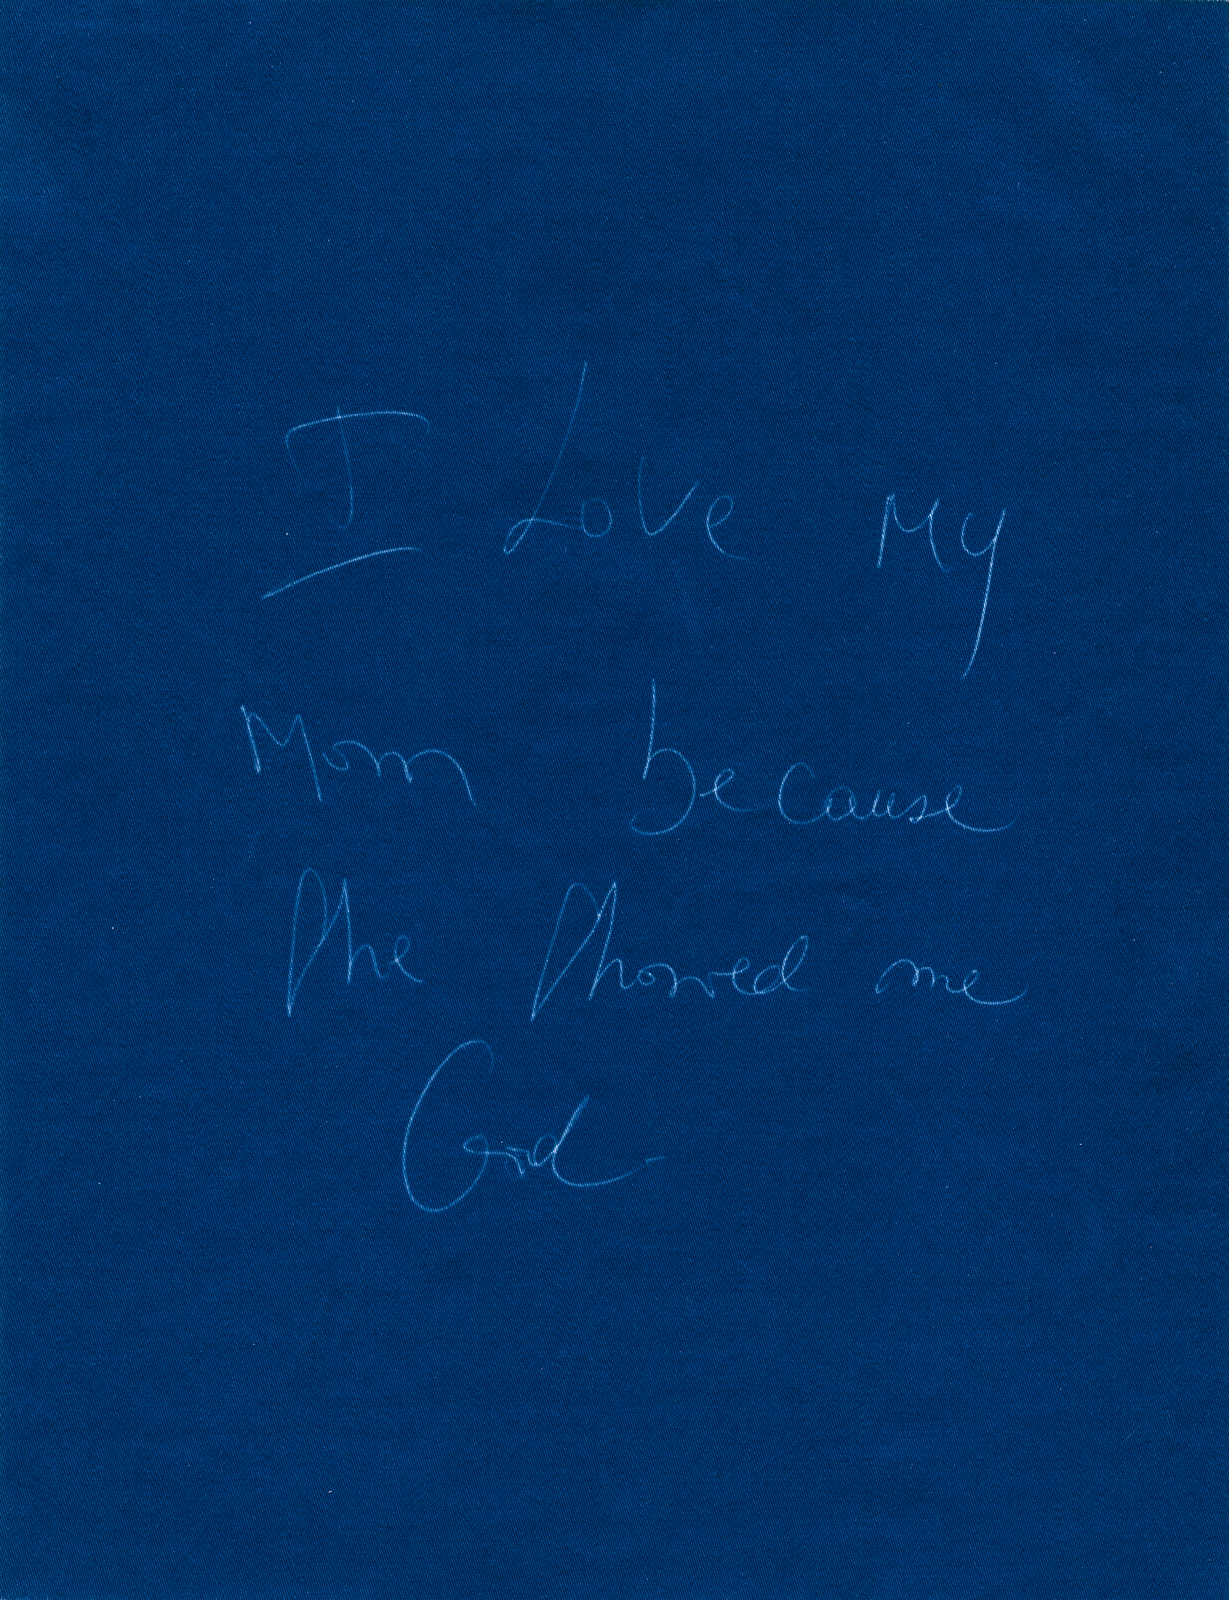 I Love My
Mom because
she showed me
God.